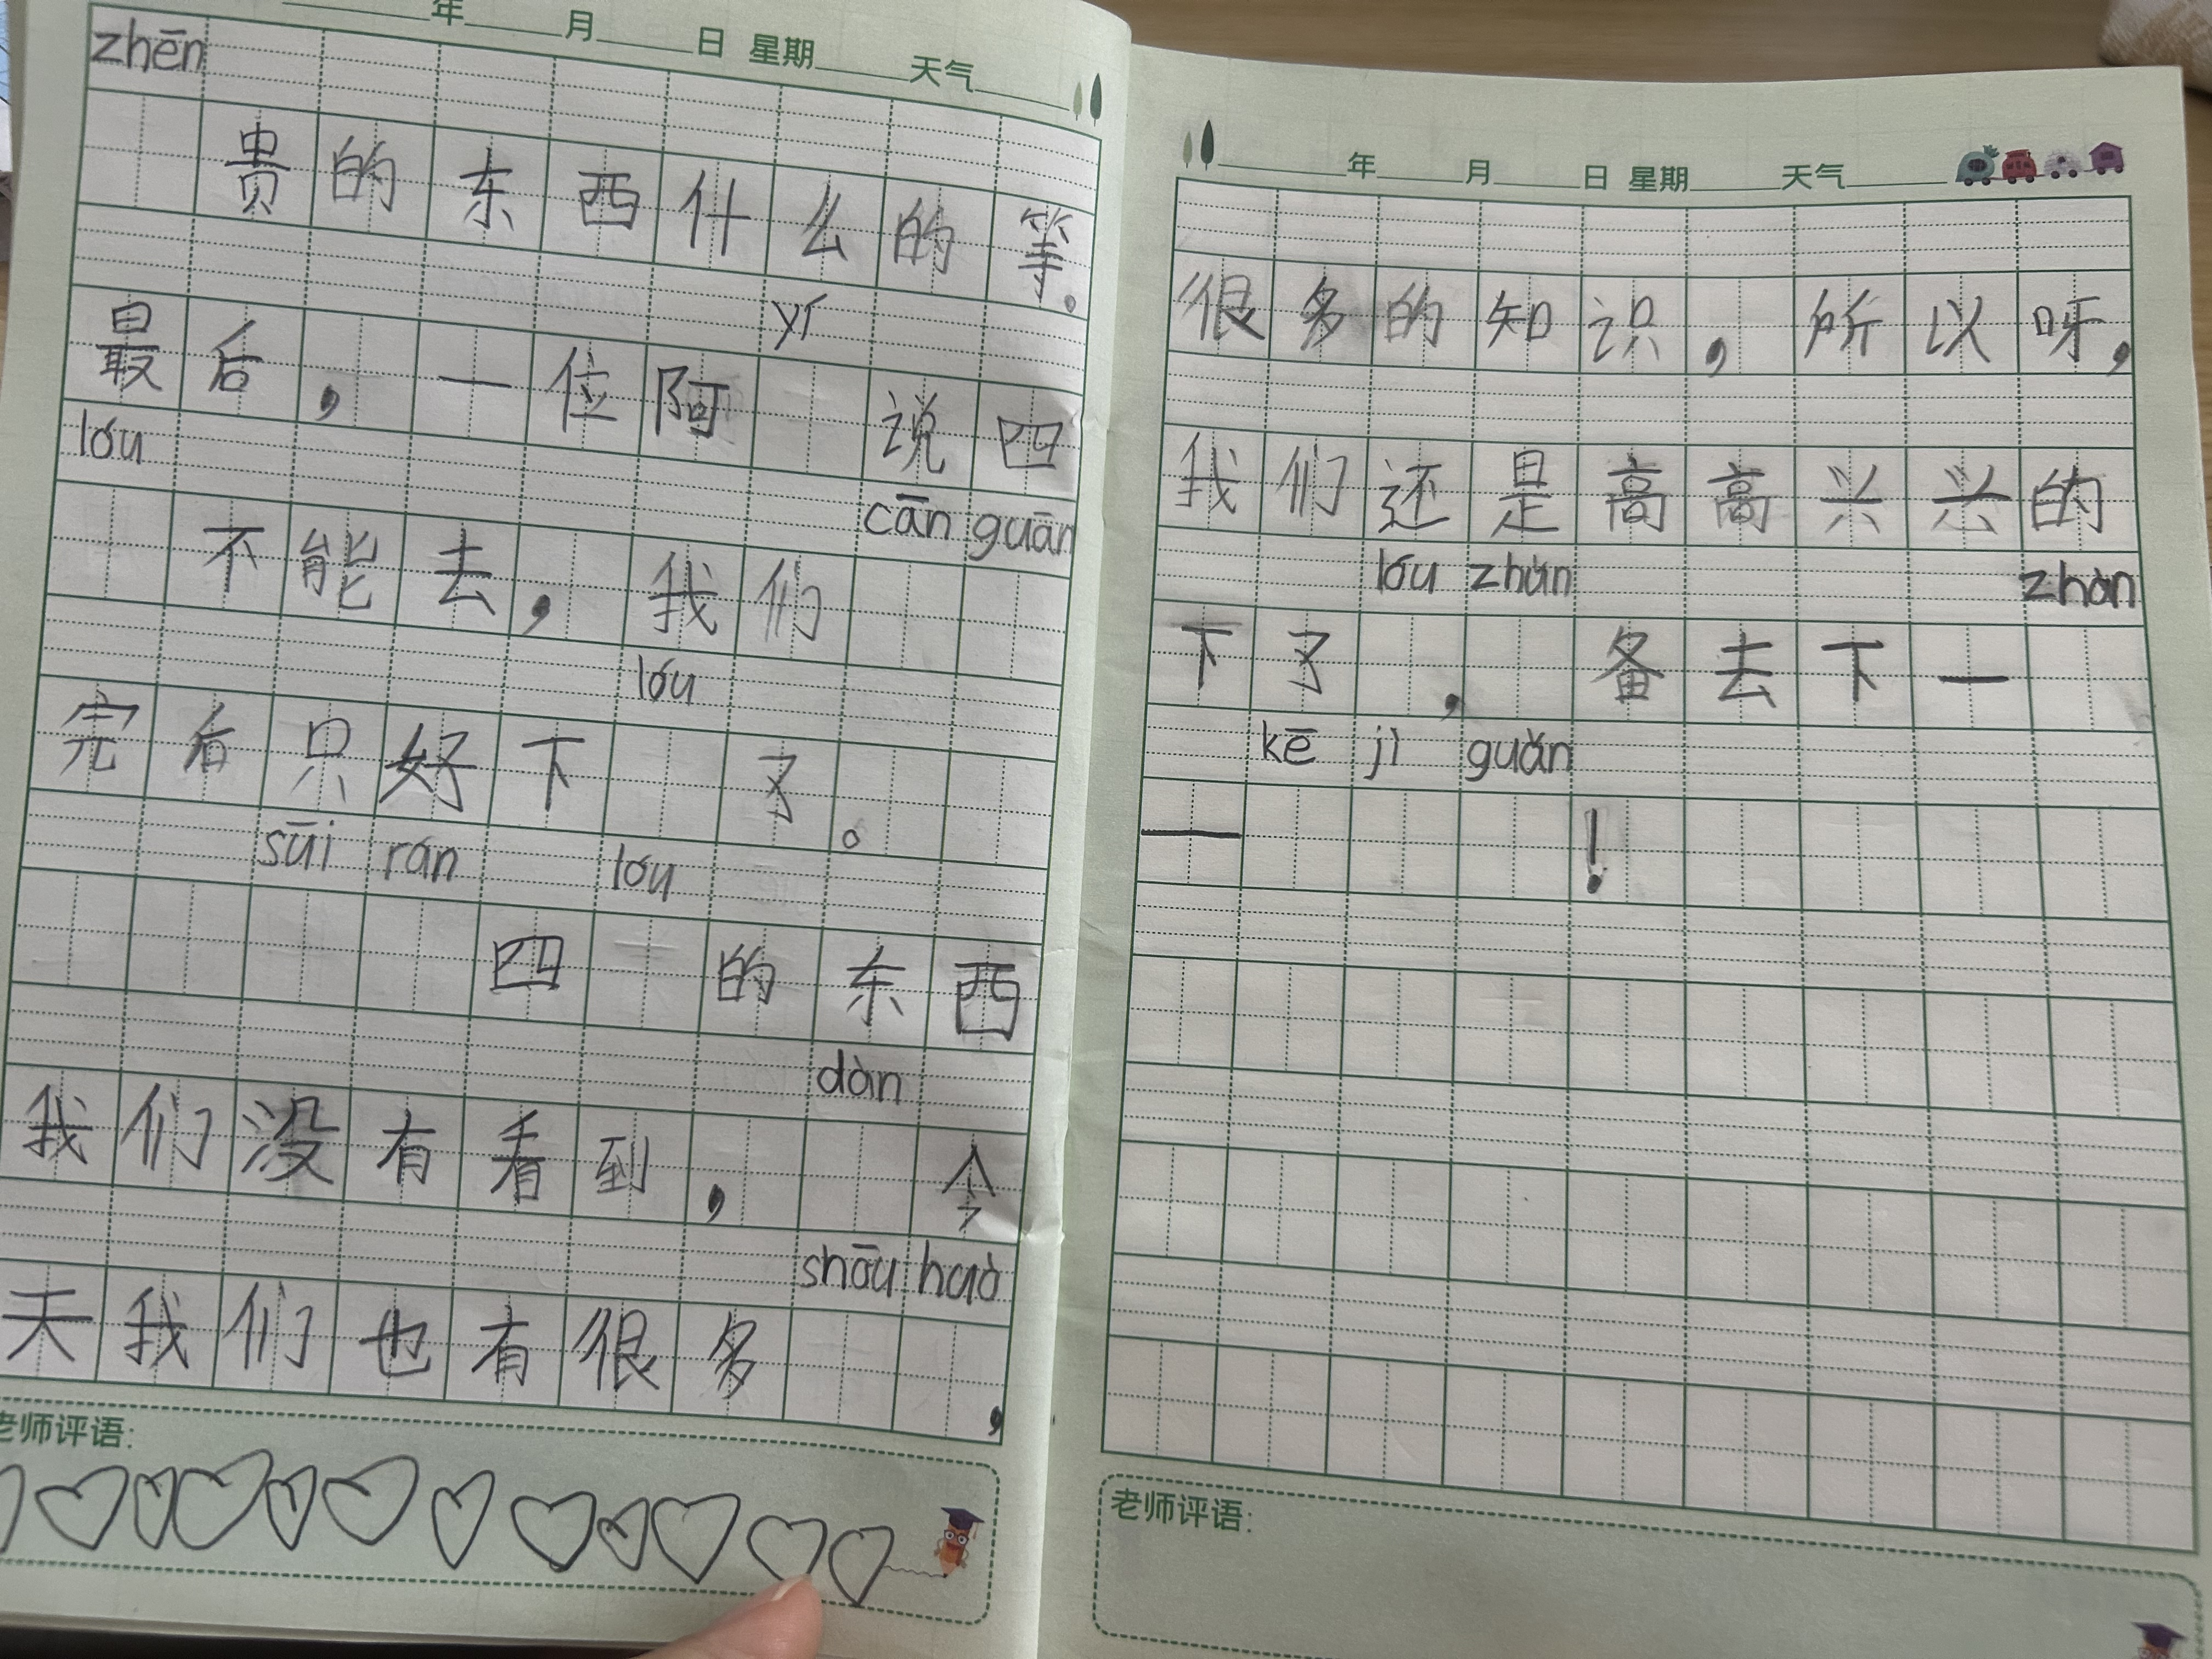 年 月 日 星期 天气
zhēn
贵的东西什么的等。
yí
最后，一位阿 说四
lóu cān guān
不能去，我们
lóu
完后只好下 了。
suī rán lóu
四 的东西
dàn
我们没有看到， 今
shōu huò
天我们也有很多 ，
老师评语:
年 月 日 星期 天气
很多的知识，所以呀，
我们还是高高兴兴的
lóu zhǔn zhàn
下了 ， 备去下一
kē jì guǎn
— !
老师评语: